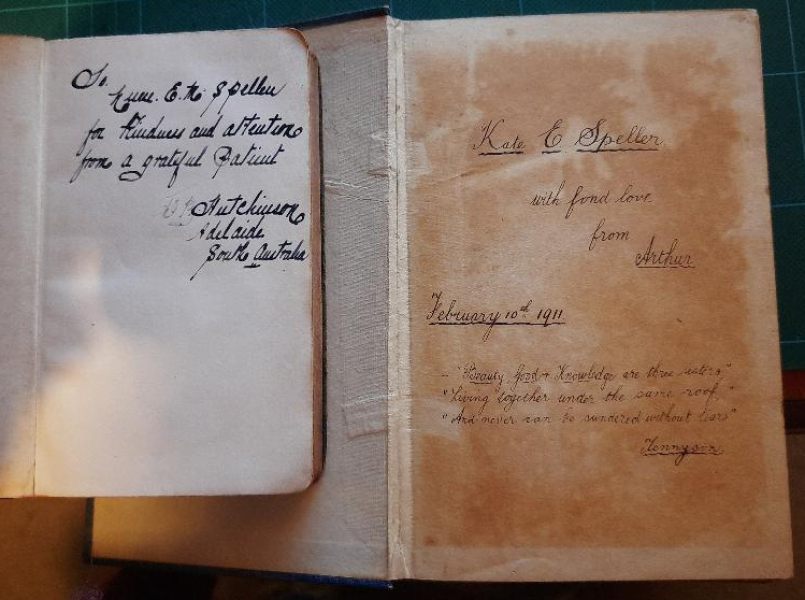 To
Nurse. E. K. Speller
for Kindness and attention
from a grateful Patient
Hutchinson
Adelaide
South Australia
Kate E Speller
with fond love
from
Arthur
February 10th 1911.
– "Beauty, Good + Knowledge are three sisters"
"Living together under the same roof,"
"And never can be sundered without tears"
Tennyson